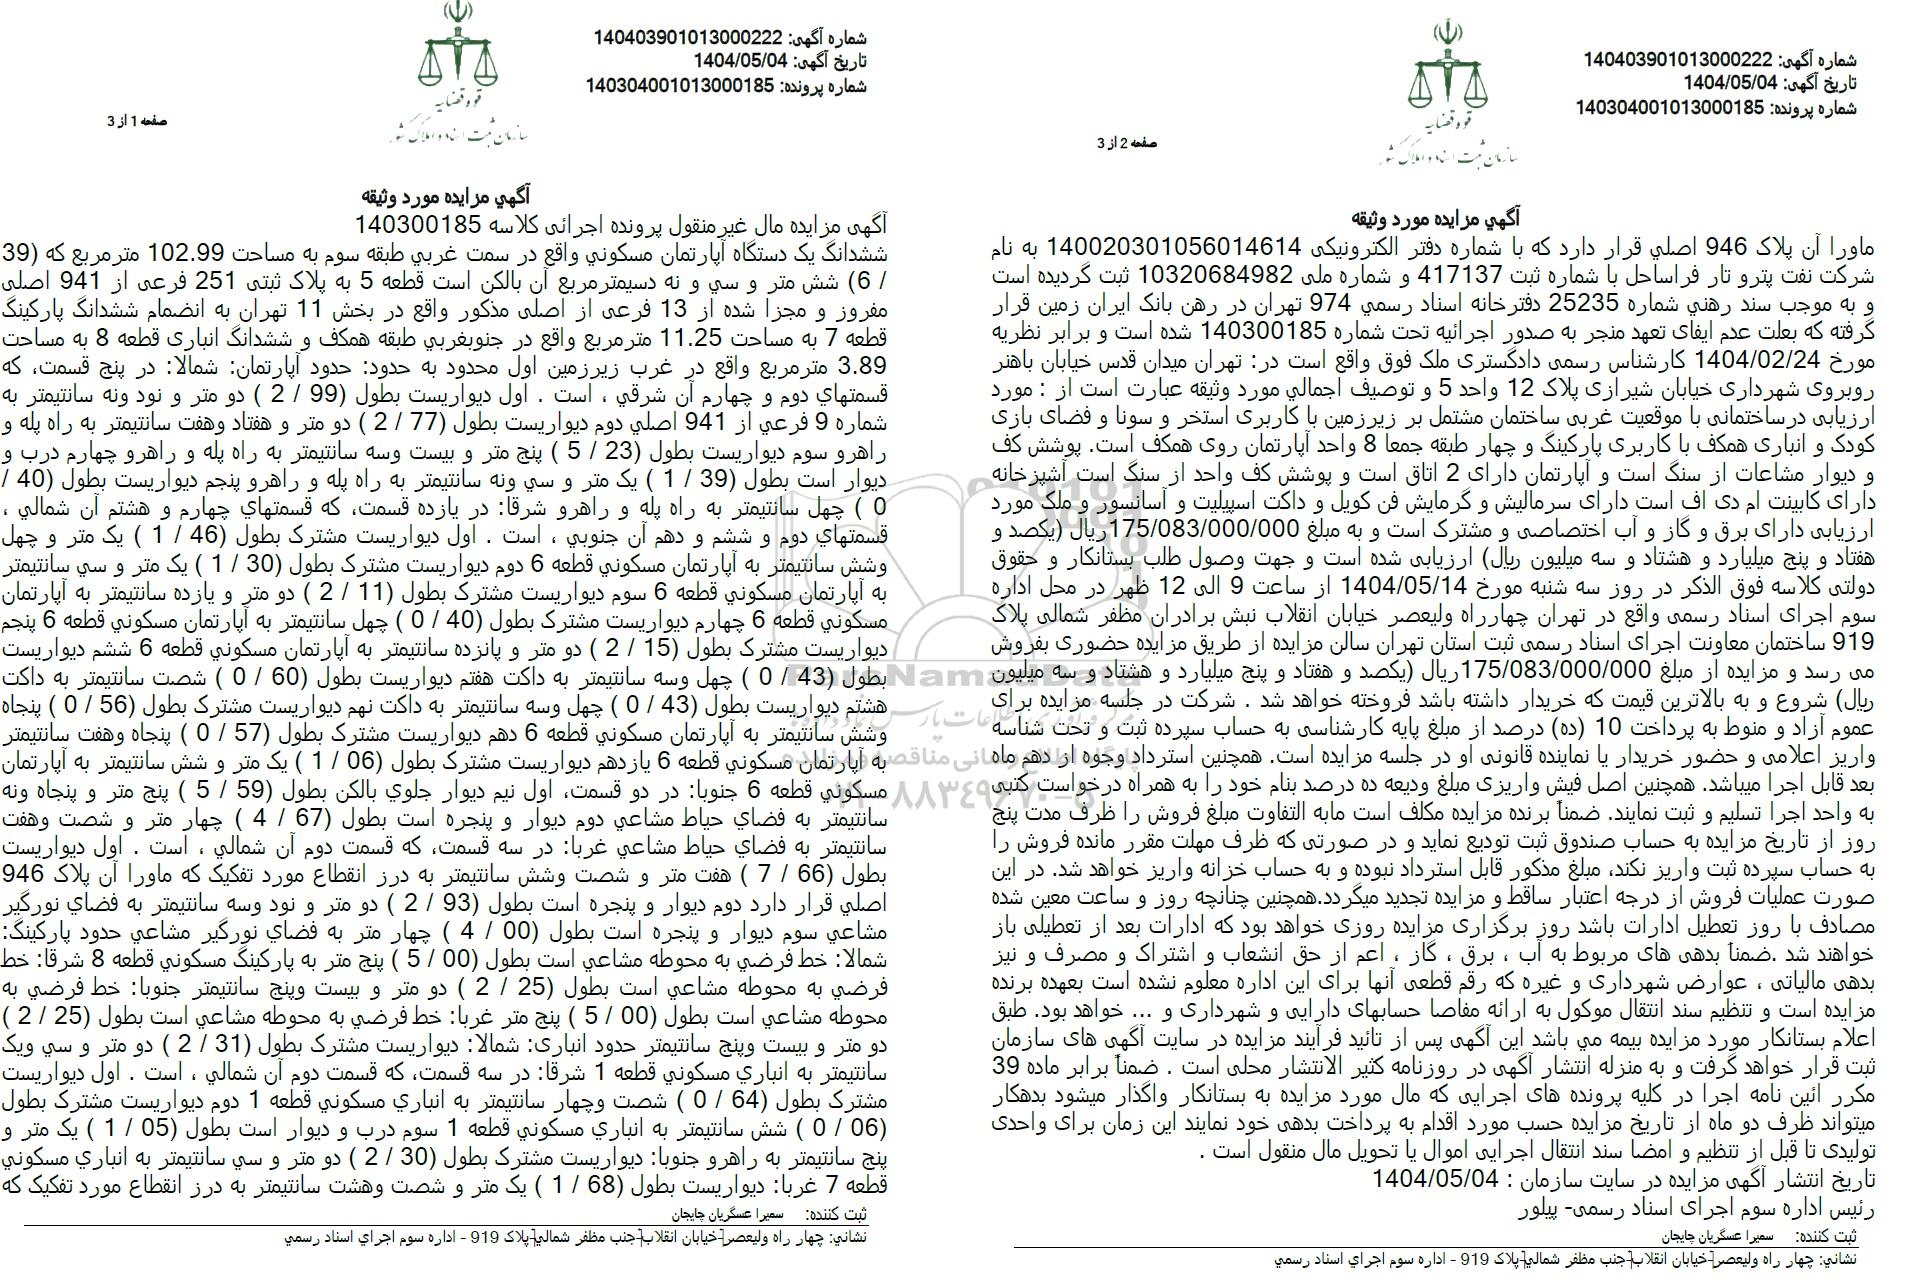 شماره آگهی: 140403901013000222
تاریخ آگهی: 1404/05/04
شماره پرونده: 140304001013000185
قوه قضاییه
سازمان ثبت اسناد و املاک کشور
صفحه 1 از 3
آگهي مزايده مورد وثيقه
آگهی مزایده مال غیرمنقول پرونده اجرائی کلاسه 140300185
ششدانگ یک دستگاه آپارتمان مسکوني واقع در سمت غربي طبقه سوم به مساحت 102.99 مترمربع که (39
/ 6) شش متر و سي و نه دسیمترمربع آن بالکن است قطعه 5 به پلاک ثبتی 251 فرعی از 941 اصلی
مفروز و مجزا شده از 13 فرعی از اصلی مذکور واقع در بخش 11 تهران به انضمام ششدانگ پارکینگ
قطعه 7 به مساحت 11.25 مترمربع واقع در جنوبغربي طبقه همکف و ششدانگ انباری قطعه 8 به مساحت
3.89 مترمربع واقع در غرب زیرزمین اول محدود به حدود: حدود آپارتمان: شمالا: در پنج قسمت، که
قسمتهاي دوم و چهارم آن شرقي ، است . اول دیواریست بطول (99 / 2 ) دو متر و نود ونه سانتیمتر به
شماره 9 فرعي از 941 اصلي دوم دیواریست بطول (77 / 2 ) دو متر و هفتاد وهفت سانتیمتر به راه پله و
راهرو سوم دیواریست بطول (23 / 5 ) پنج متر و بیست وسه سانتیمتر به راه پله و راهرو چهارم درب و
دیوار است بطول (39 / 1 ) یک متر و سي ونه سانتیمتر به راه پله و راهرو پنجم دیواریست بطول (40 /
0 ) چهل سانتیمتر به راه پله و راهرو شرقا: در یازده قسمت، که قسمتهاي چهارم و هشتم آن شمالي ،
قسمتهاي دوم و ششم و دهم آن جنوبي ، است . اول دیواریست مشترک بطول (46 / 1 ) یک متر و چهل
وشش سانتیمتر به آپارتمان مسکوني قطعه 6 دوم دیواریست مشترک بطول (30 / 1 ) یک متر و سي سانتیمتر
به آپارتمان مسکوني قطعه 6 سوم دیواریست مشترک بطول (11 / 2 ) دو متر و یازده سانتیمتر به آپارتمان
مسکوني قطعه 6 چهارم دیواریست مشترک بطول (40 / 0 ) چهل سانتیمتر به آپارتمان مسکوني قطعه 6 پنجم
دیواریست مشترک بطول (15 / 2 ) دو متر و پانزده سانتیمتر به آپارتمان مسکوني قطعه 6 ششم دیواریست
بطول (43 / 0 ) چهل وسه سانتیمتر به داکت هفتم دیواریست بطول (60 / 0 ) شصت سانتیمتر به داکت
هشتم دیواریست بطول (43 / 0 ) چهل وسه سانتیمتر به داکت نهم دیواریست مشترک بطول (56 / 0 ) پنجاه
وشش سانتیمتر به آپارتمان مسکوني قطعه 6 دهم دیواریست مشترک بطول (57 / 0 ) پنجاه وهفت سانتیمتر
به آپارتمان مسکوني قطعه 6 یازدهم دیواریست مشترک بطول (06 / 1 ) یک متر و شش سانتیمتر به آپارتمان
مسکوني قطعه 6 جنوبا: در دو قسمت، اول نیم دیوار جلوي بالکن بطول (59 / 5 ) پنج متر و پنجاه ونه
سانتیمتر به فضاي حیاط مشاعي دوم دیوار و پنجره است بطول (67 / 4 ) چهار متر و شصت وهفت
سانتیمتر به فضاي حیاط مشاعي غربا: در سه قسمت، که قسمت دوم آن شمالي ، است . اول دیواریست
بطول (66 / 7 ) هفت متر و شصت وشش سانتیمتر به درز انقطاع مورد تفکیک که ماورا آن پلاک 946
اصلي قرار دارد دوم دیوار و پنجره است بطول (93 / 2 ) دو متر و نود وسه سانتیمتر به فضاي نورگیر
مشاعي سوم دیوار و پنجره است بطول (00 / 4 ) چهار متر به فضاي نورگیر مشاعي حدود پارکینگ:
شمالا: خط فرضي به محوطه مشاعي است بطول (00 / 5 ) پنج متر به پارکینگ مسکوني قطعه 8 شرقا: خط
فرضي به محوطه مشاعي است بطول (25 / 2 ) دو متر و بیست وپنج سانتیمتر جنوبا: خط فرضي به
محوطه مشاعي است بطول (00 / 5 ) پنج متر غربا: خط فرضي به محوطه مشاعي است بطول (25 / 2 )
دو متر و بیست وپنج سانتیمتر حدود انباری: شمالا: دیواریست مشترک بطول (31 / 2 ) دو متر و سي ویک
سانتیمتر به انباري مسکوني قطعه 1 شرقا: در سه قسمت، که قسمت دوم آن شمالي ، است . اول دیواریست
مشترک بطول (64 / 0 ) شصت وچهار سانتیمتر به انباري مسکوني قطعه 1 دوم دیواریست مشترک بطول
(06 / 0 ) شش سانتیمتر به انباري مسکوني قطعه 1 سوم درب و دیوار است بطول (05 / 1 ) یک متر و
پنج سانتیمتر به راهرو جنوبا: دیواریست مشترک بطول (30 / 2 ) دو متر و سي سانتیمتر به انباري مسکوني
قطعه 7 غربا: دیواریست بطول (68 / 1 ) یک متر و شصت وهشت سانتیمتر به درز انقطاع مورد تفکیک که
ثبت کننده: سمیرا عسگریان چایجان
نشاني: چهار راه ولیعصر-خیابان انقلاب-جنب مظفر شمالي-پلاک 919 - اداره سوم اجراي اسناد رسمي
شماره آگهی: 140403901013000222
تاریخ آگهی: 1404/05/04
شماره پرونده: 140304001013000185
قوه قضاییه
سازمان ثبت اسناد و املاک کشور
صفحه 2 از 3
آگهي مزايده مورد وثيقه
ماورا آن پلاک 946 اصلي قرار دارد که با شماره دفتر الکترونیکی 140020301056014614 به نام
شرکت نفت پترو تار فراساحل با شماره ثبت 417137 و شماره ملی 10320684982 ثبت گردیده است
و به موجب سند رهني شماره 25235 دفترخانه اسناد رسمي 974 تهران در رهن بانک ایران زمین قرار
گرفته که بعلت عدم ایفای تعهد منجر به صدور اجرائیه تحت شماره 140300185 شده است و برابر نظریه
مورخ 1404/02/24 کارشناس رسمی دادگستری ملک فوق واقع است در: تهران میدان قدس خیابان باهنر
روبروی شهرداری خیابان شیرازی پلاک 12 واحد 5 و توصیف اجمالي مورد وثیقه عبارت است از : مورد
ارزیابی درساختمانی با موقعیت غربی ساختمان مشتمل بر زیرزمین با کاربری استخر و سونا و فضای بازی
کودک و انباری همکف با کاربری پارکینگ و چهار طبقه جمعا 8 واحد آپارتمان روی همکف است. پوشش کف
و دیوار مشاعات از سنگ است و آپارتمان دارای 2 اتاق است و پوشش کف واحد از سنگ است آشپزخانه
دارای کابینت ام دی اف است دارای سرمالیش و گرمایش فن کویل و داکت اسپیلیت و آسانسور و ملک مورد
ارزیابی دارای برق و گاز و آب اختصاصی و مشترک است و به مبلغ 175/083/000/000ریال (یکصد و
هفتاد و پنج میلیارد و هشتاد و سه میلیون ریال) ارزیابی شده است و جهت وصول طلب بستانکار و حقوق
دولتی کلاسه فوق الذکر در روز سه شنبه مورخ 1404/05/14 از ساعت 9 الی 12 ظهر در محل اداره
سوم اجرای اسناد رسمی واقع در تهران چهارراه ولیعصر خیابان انقلاب نبش برادران مظفر شمالی پلاک
919 ساختمان معاونت اجرای اسناد رسمی ثبت استان تهران سالن مزایده از طریق مزایده حضوری بفروش
می رسد و مزایده از مبلغ 175/083/000/000ریال (یکصد و هفتاد و پنج میلیارد و هشتاد و سه میلیون
ریال) شروع و به بالاترین قیمت که خریدار داشته باشد فروخته خواهد شد . شرکت در جلسه مزایده برای
عموم آزاد و منوط به پرداخت 10 (ده) درصد از مبلغ پایه کارشناسی به حساب سپرده ثبت و تحت شناسه
واریز اعلامی و حضور خریدار یا نماینده قانونی او در جلسه مزایده است. همچنین استرداد وجوه از دهم ماه
بعد قابل اجرا میباشد. همچنین اصل فیش واریزی مبلغ ودیعه ده درصد بنام خود را به همراه درخواست کتبی
به واحد اجرا تسلیم و ثبت نمایند. ضمناً برنده مزایده مکلف است مابه التفاوت مبلغ فروش را ظرف مدت پنج
روز از تاریخ مزایده به حساب صندوق ثبت تودیع نماید و در صورتی که ظرف مهلت مقرر مانده فروش را
به حساب سپرده ثبت واریز نکند، مبلغ مذکور قابل استرداد نبوده و به حساب خزانه واریز خواهد شد. در این
صورت عملیات فروش از درجه اعتبار ساقط و مزایده تجدید میگردد.همچنین چنانچه روز و ساعت معین شده
مصادف با روز تعطیل ادارات باشد روز برگزاری مزایده روزی خواهد بود که ادارات بعد از تعطیلی باز
خواهند شد .ضمناً بدهی های مربوط به آب ، برق ، گاز ، اعم از حق انشعاب و اشتراک و مصرف و نیز
بدهی مالیاتی ، عوارض شهرداری و غیره که رقم قطعی آنها برای این اداره معلوم نشده است بعهده برنده
مزایده است و تنظیم سند انتقال موکول به ارائه مفاصا حسابهای دارایی و شهرداری و ... خواهد بود. طبق
اعلام بستانکار مورد مزایده بیمه مي باشد این آگهی پس از تائید فرآیند مزایده در سایت آگهی های سازمان
ثبت قرار خواهد گرفت و به منزله انتشار آگهی در روزنامه کثیر الانتشار محلی است . ضمناً برابر ماده 39
مکرر ائین نامه اجرا در کلیه پرونده های اجرایی که مال مورد مزایده به بستانکار واگذار میشود بدهکار
میتواند ظرف دو ماه از تاریخ مزایده حسب مورد اقدام به پرداخت بدهی خود نمایند این زمان برای واحدی
تولیدی تا قبل از تنظیم و امضا سند انتقال اجرایی اموال یا تحویل مال منقول است .
تاریخ انتشار آگهی مزایده در سایت سازمان : 1404/05/04
رئیس اداره سوم اجرای اسناد رسمی- پیلور
ثبت کننده: سمیرا عسگریان چایجان
نشاني: چهار راه ولیعصر-خیابان انقلاب-جنب مظفر شمالي-پلاک 919 - اداره سوم اجراي اسناد رسمي
ParsNamadData
پایگاه اطلاع رسانی مناقصه و مزایده
۰۲۱-۸۸۳۴۹۶۷۰-۵